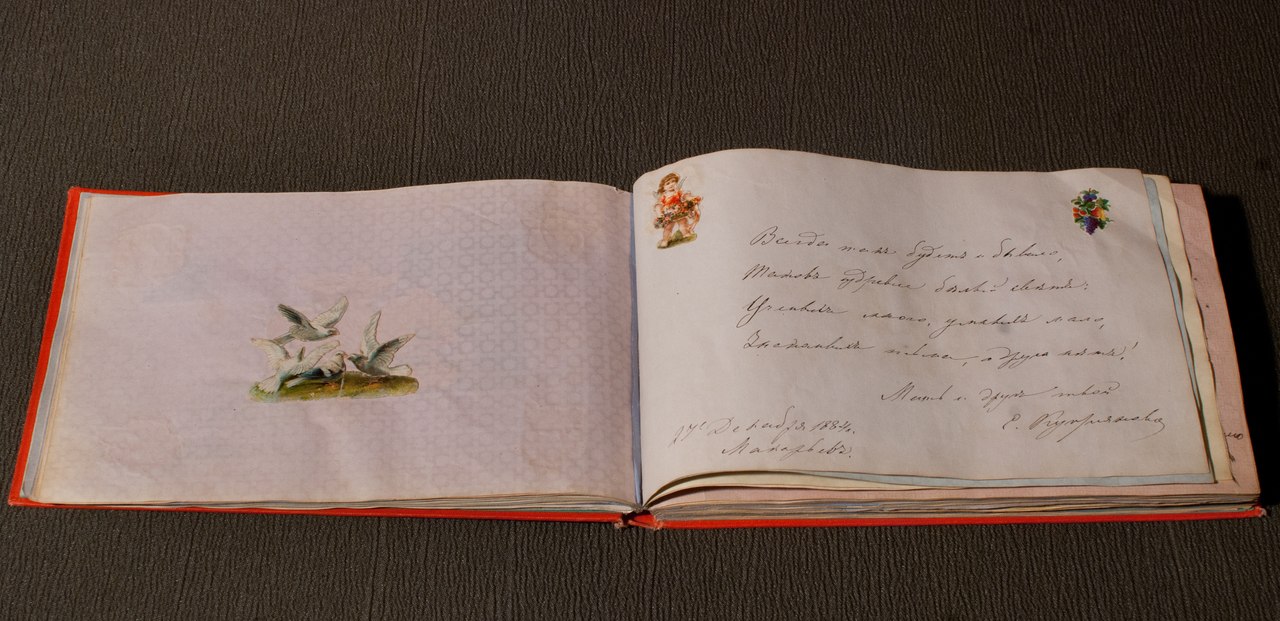 Всегда такъ будетъ и бывало,
Таковъ издревле бѣлый свѣтъ:
Ученыхъ много, умныхъ мало,
Знакомыхъ тьма, а друга нѣтъ!
Мать и другъ твой
Е. Купріянова
27го Декабря 1884 г.
Макарьевъ.